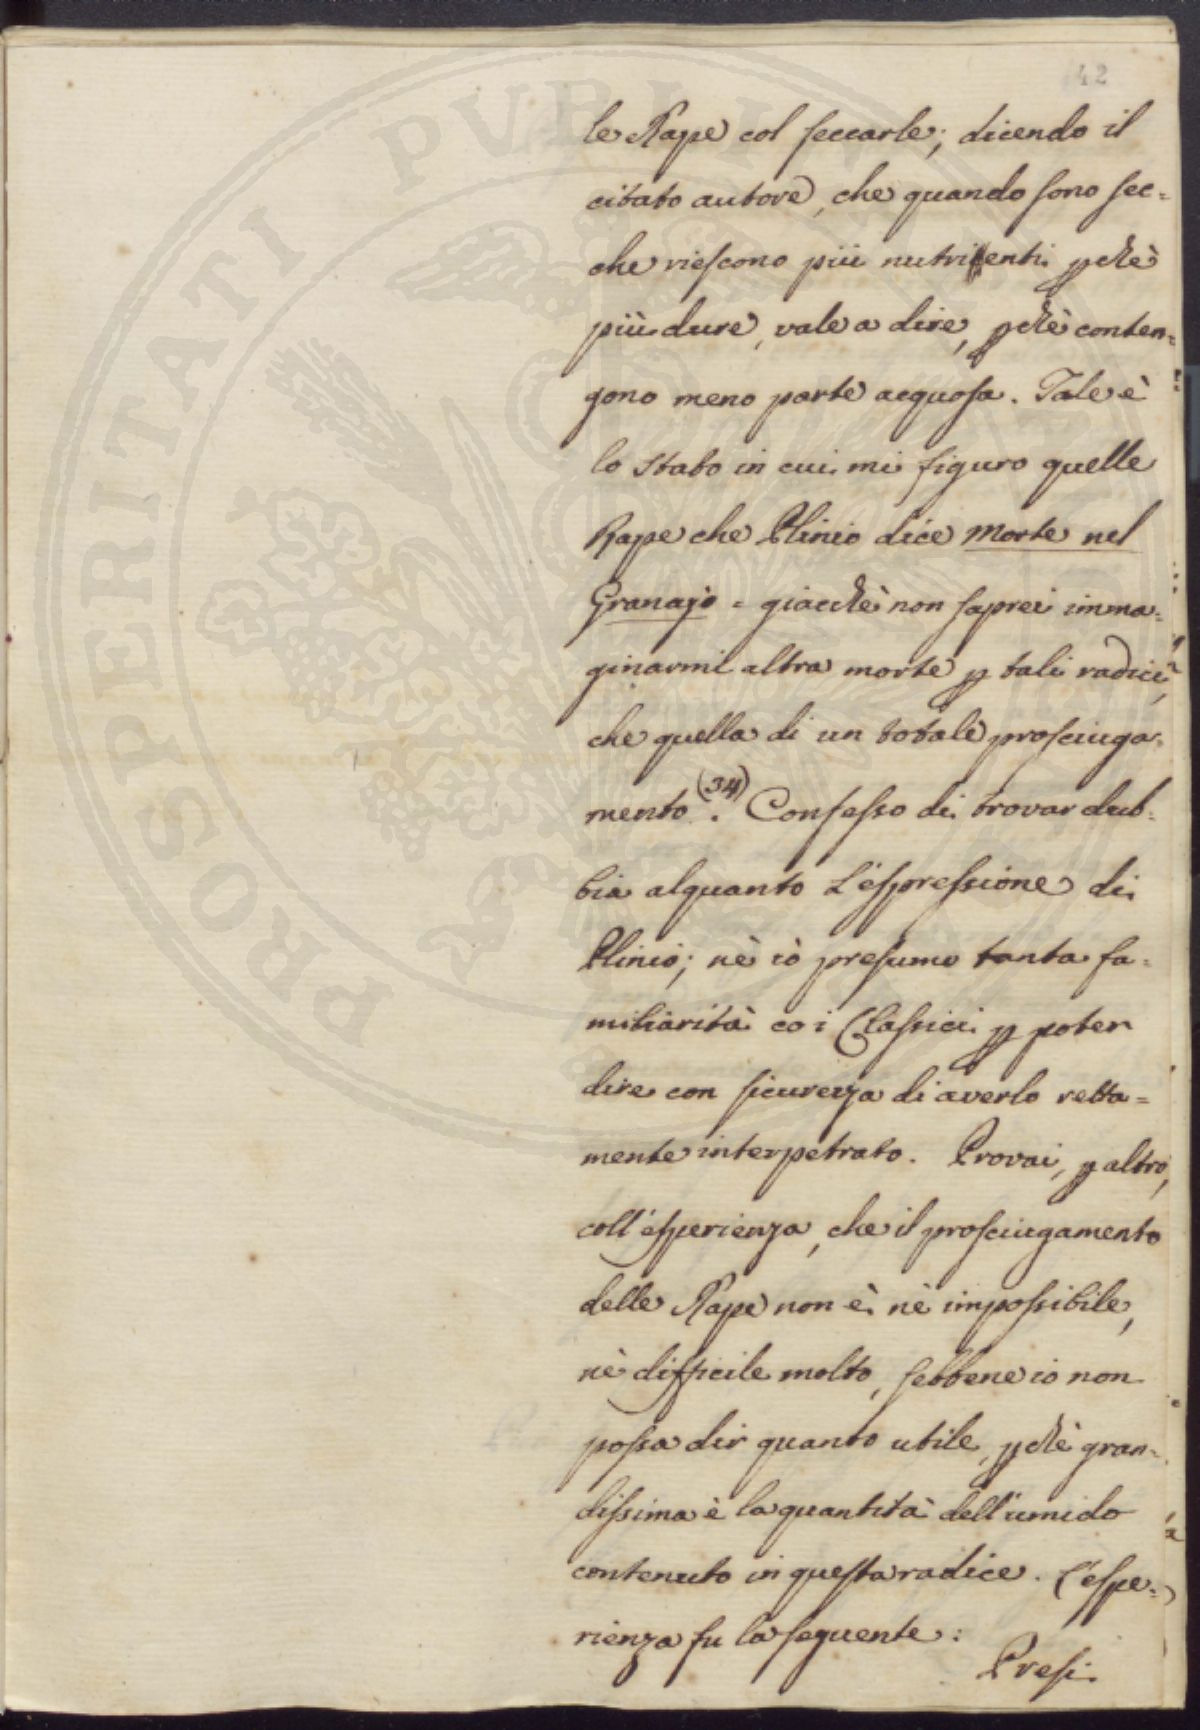 42
le Rape col seccarle; dicendo il
citato autore, che quando sono sec=
che riescono più nutrienti pchè
più dure, vale a dire, pchè conten=
gono meno parte acquosa. Tale è
lo stato in cui mi figuro quelle
Rape che Plinio dice morte nel
Granajo = giacchè non saprei imma=
ginarmi altra morte p tali radici,
che quella di un totale prosciuga=
mento (34). Confesso di trovar dub=
bia alquanto L'espressione di
Plinio; nè iò presumo tanta fa=
miliarità co i Classici p poter
dire con sicurezza di averlo retta=
mente interpetrato. Provai, p altro,
coll'esperienza, che il prosciugamento
delle Rape non è nè impossibile,
nè difficile molto, sebbene io non
possa dir quanto utile, pchè gran=
dissima è la quantità dell'umido
contenuto in questa radice. L'espe=
rienza fu la seguente:
Presi
PROSPERITATI PUBLI